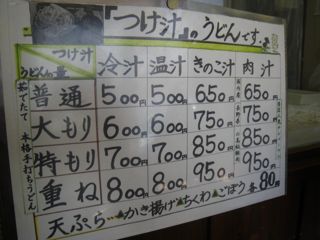 『つけ汁』のうどんです。
つけ汁 冷汁 温汁 きのこ汁 肉汁
うどんの量
普通 500円 500円 650円 650円
大もり 600円 600円 750円 750円
特もり 700円 700円 850円 850円
重ね 800円 800円 950円 950円
茹でたて 本格手打ちうどん
天ぷら かき揚げ ちくわ ごぼう 各80円